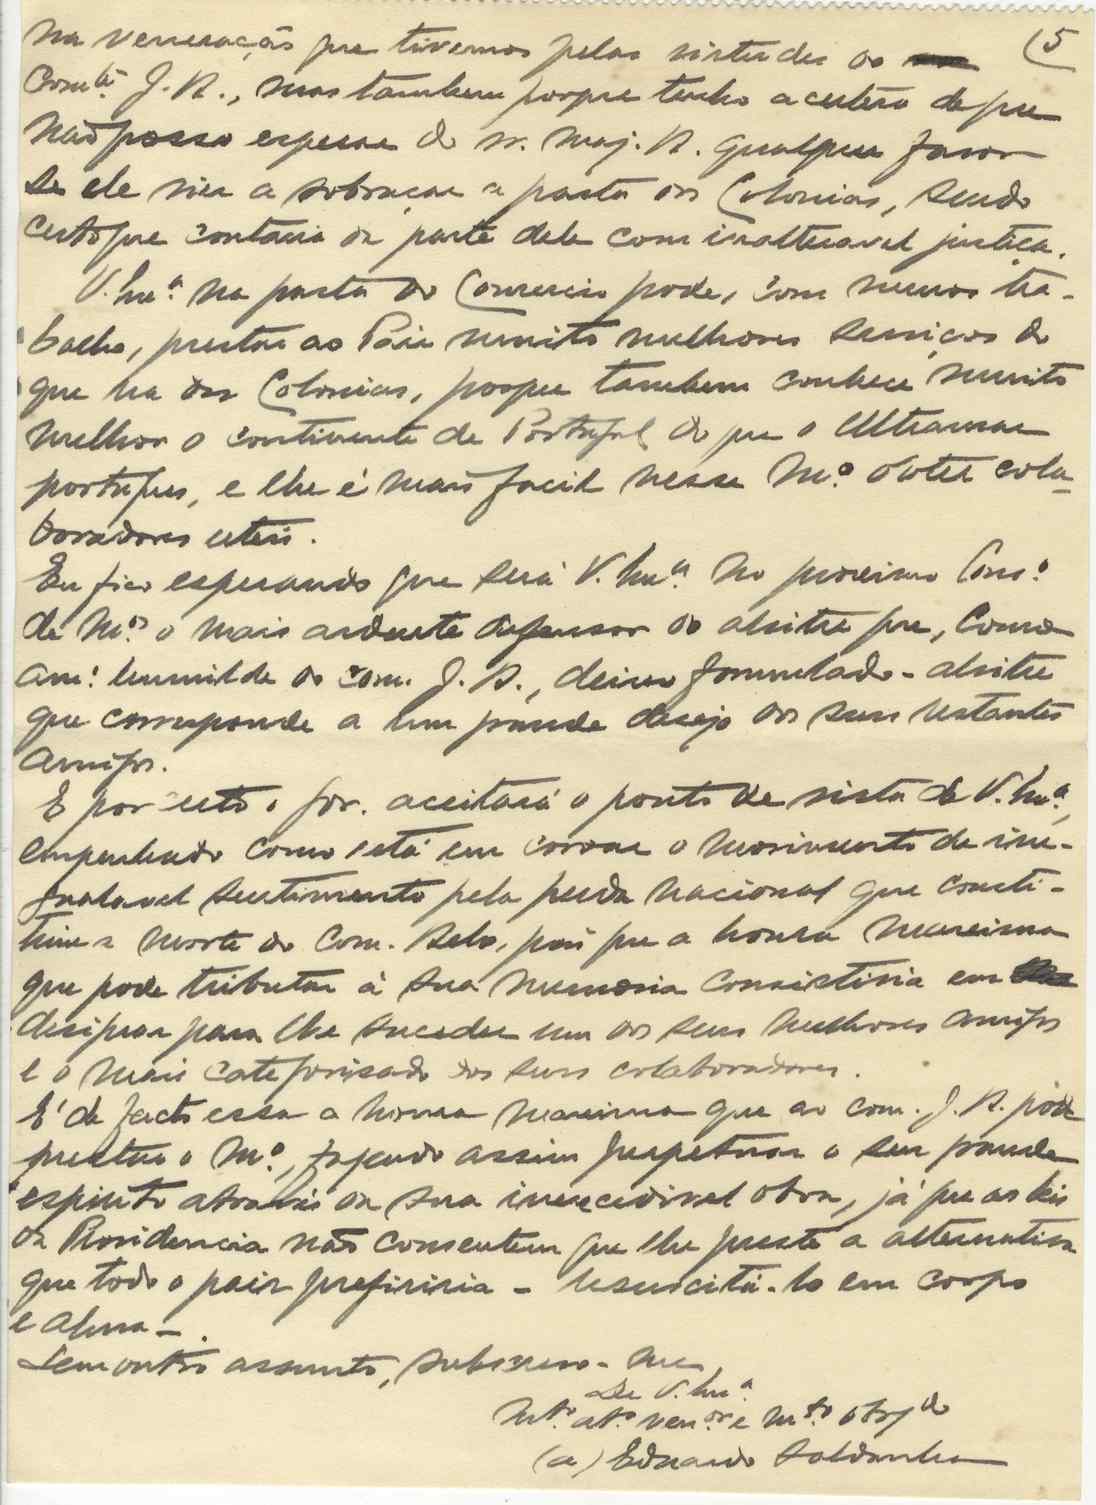 (5
na veneração que tivemos pelas virtudes do
Com.te J. B., mas tambem porque tenho a certeza de que
não posso esperar do sr. maj. A. qualquer favor
se ele vier a sobraçar a pasta das Colonias, sendo
certo que contaria da parte dele com inalteravel justiça.
V. Ex.ª na pasta do Comercio pode, com menos tra-
balho, prestar ao Paiz muito melhores serviços do
que na das Colonias, porque tambem conhece muito
melhor o continente de Portugal do que o Ultramar
portugues, e lhe é mais facil nesse M.º obter cola-
boradores uteis.
Eu fico esperando que será V. Ex.ª no proximo Cons.º
de M.os o mais ardente defensor do alvitre que, como
am.º humilde do com. J. B., deixo formulado - alvitre
que corresponde a um grande desejo dos seus restantes
amigos.
E por certo o gov. aceitará o ponto de vista de V. Ex.ª,
empenhado como está em coroar o movimento de ine-
gualavel sentimento pela perda nacional que consti-
tuiu a morte do Com. Belo, pois que a honra maxima
que pode tributar á sua memoria consistiria em
designar para lhe suceder um dos seus melhores amigos
e o mais categorisado dos seus colaboradores.
É de facto essa a honra maxima que ao com. J. B. póde
prestar o M.º, fazendo assim perpetuar o seu grande
espirito atravéz da sua inexcedivel obra, já que as leis
da Providencia não consentem que lhe preste a alternativa
que todo o paiz prefiriria - resuscitá-lo em corpo
e alma -.
Sem outro assunto, subscrevo-me,
De V. Ex.ª
Mt.º at.º ven.or e mt.º obrg.do
(a) Eduardo Saldanha